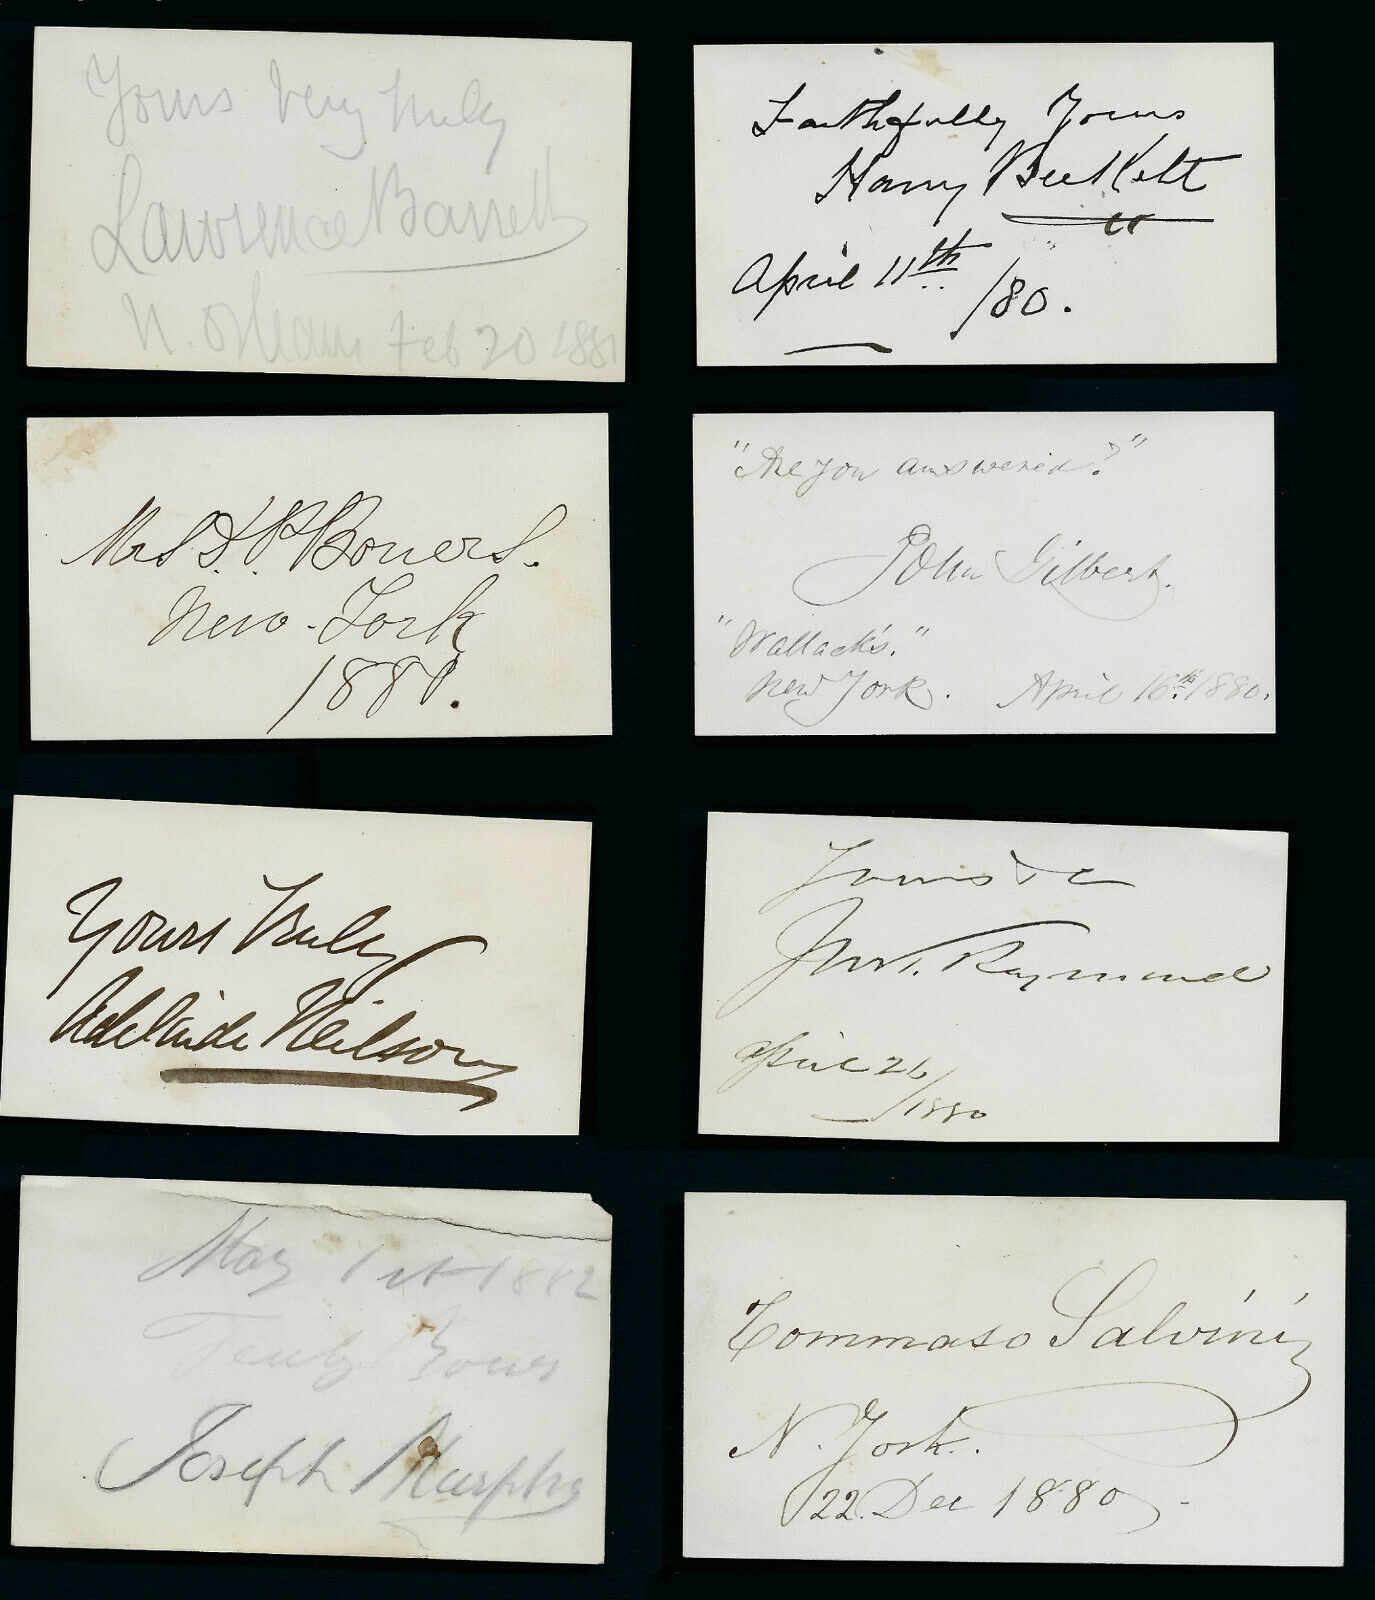 Yours Very Truly
Lawrence Barrett
N. Orleans Feb 20 1881
Faithfully Yours
Harry Beckett
April 11th /80.
Mrs D. P. Bowers.
New-York
1880.
"Are you answered?"
John Gilbert.
"Wallack's."
New York. April 16th 1880.
Yours Truly
Adelaide Neilson
Yours &c
Jno. T. Raymond
April 26/1880
May 1st 1882
Truly Yours
Joseph Murphy
Tommaso Salvini
N. York.
22. Dec 1880